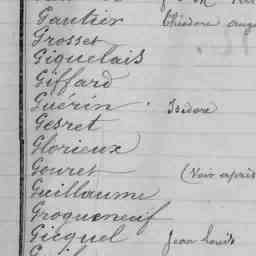 Gautier Théodore
Grosset
Giquelais
Giffard
Guérin . Isidore
Gesret
Glorieux
Gouret (Voir après
Guillaume
Groqueneuf
Gicquel Jean Louis